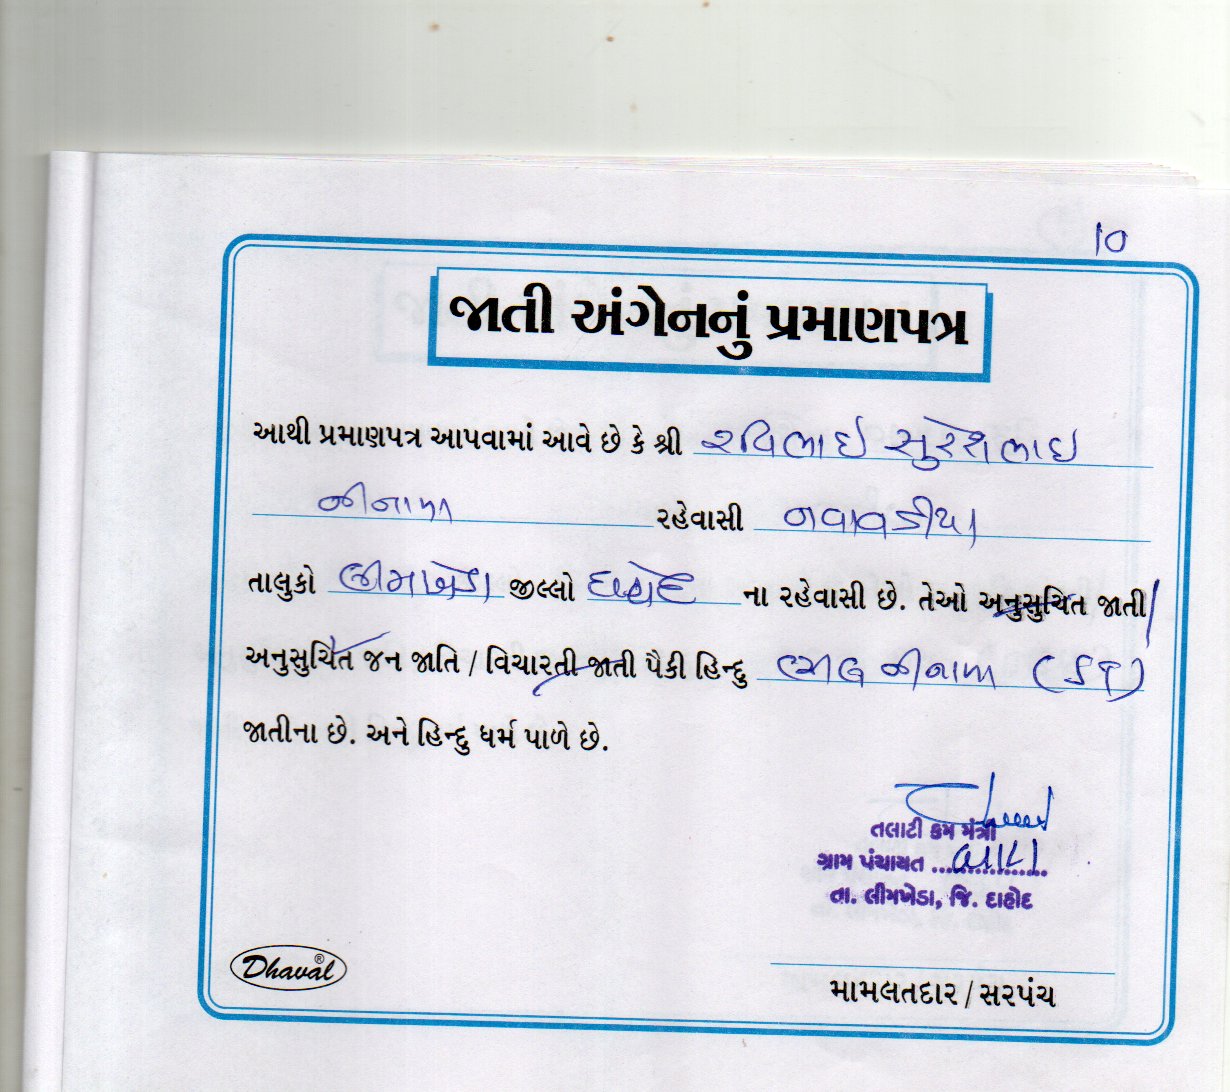 10
જાતી અંગેનનું પ્રમાણપત્ર
આથી પ્રમાણપત્ર આપવામાં આવે છે કે શ્રી રવિભાઇ સુરેશભાઇ
નીનામા રહેવાસી નવાવડીયા
તાલુકો લીમખેડા જીલ્લો દાહોદ ના રહેવાસી છે. તેઓ અનુસુચિત જાતી/
અનુસુચિત જન જાતિ / વિચારતી જાતી પૈકી હિન્દુ ભીલ નીનામા
જાતીના છે. અને હિન્દુ ધર્મ પાળે છે.
તલાટી કમ મંત્રી
ગ્રામ પંચાયત ................
તા. લીમખેડા, જિ. દાહોદ
Dhaval®
મામલતદાર / સરપંચ